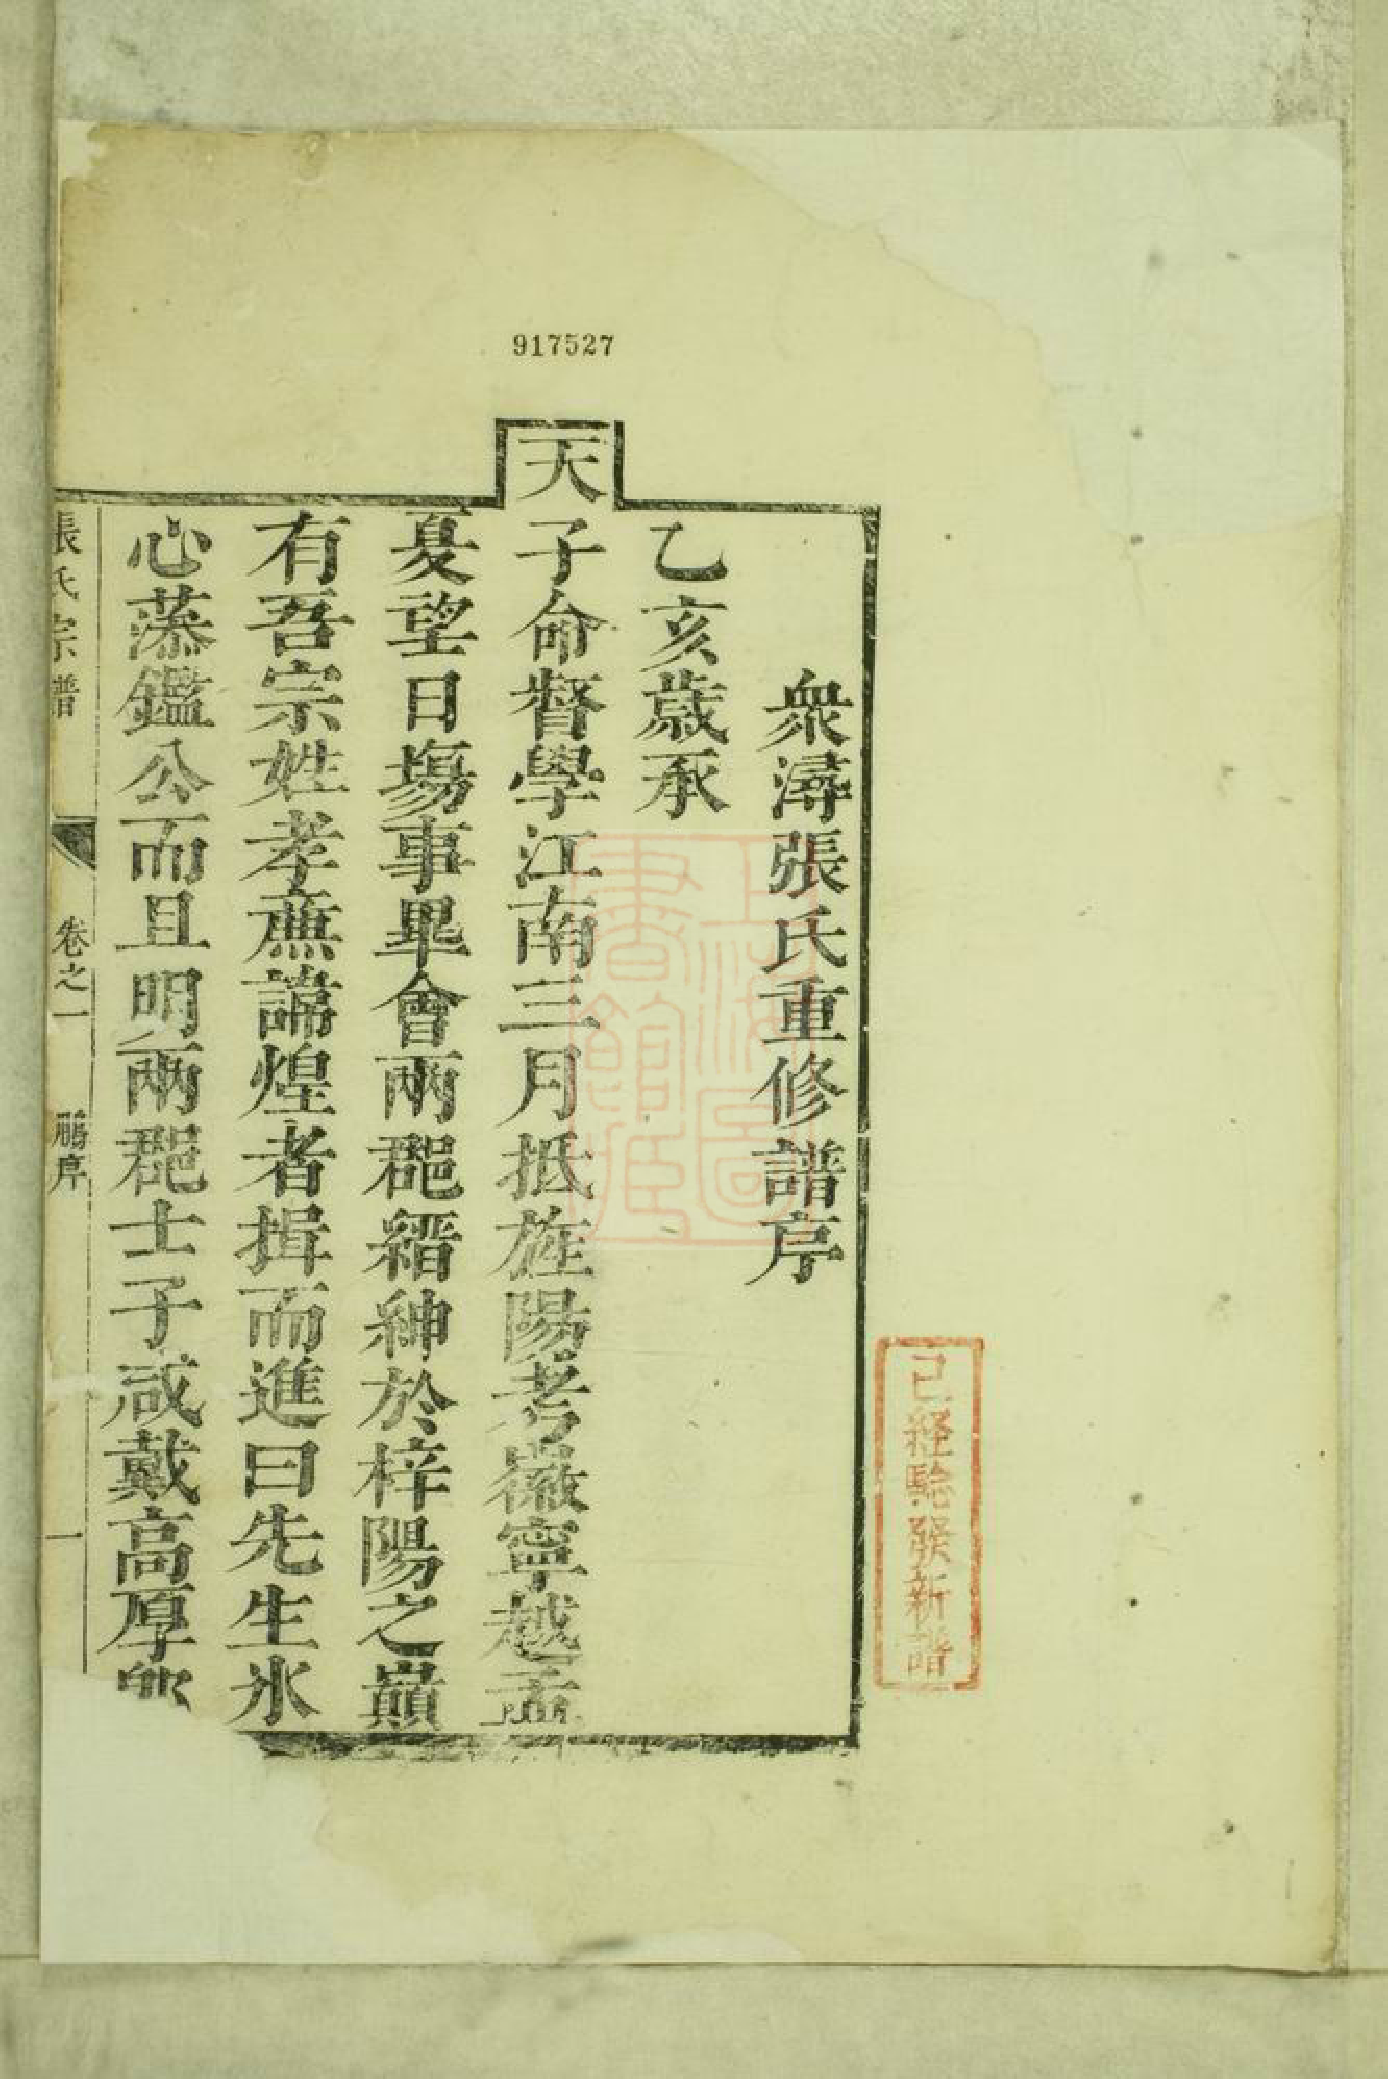 917527
衆潯張氏重修譜序
乙亥歲承
天子命督學江南三月抵旌陽考徽寧越孟
夏望日塲事畢會兩郡縉紳於梓陽之巔
有吾宗姓孝廉諱煌者揖而進曰先生氷
心藻鑑公而且明兩郡士子咸戴高厚
張氏宗譜 卷之一 鵬序 一
上海圖書館藏
已経驗發新譜